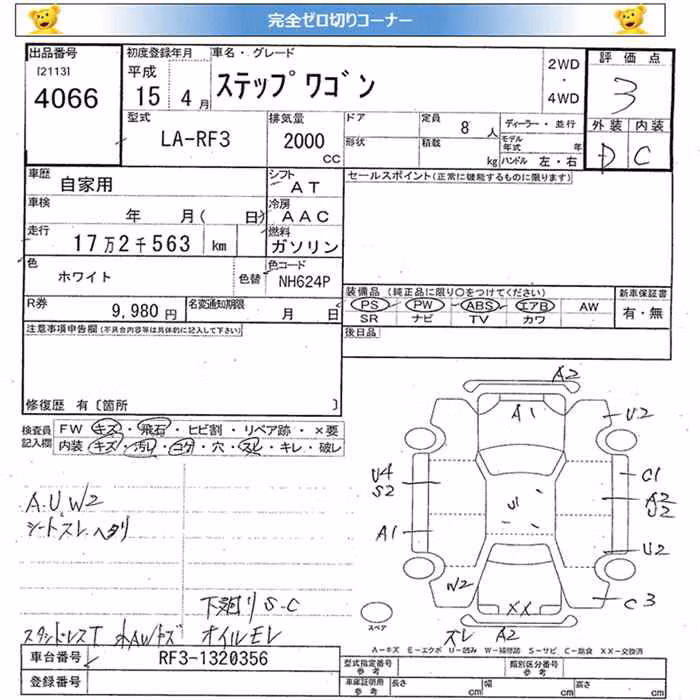 完全ゼロ切りコーナー
出品番号
[2113]
4066
初度登録年月
平成
15 4月
車名・グレード
ステップワゴン
2WD
・
4WD
評価点
3
外装 内装
D C
型式
LA-RF3
排気量
2000
CC
ドア
形状
定員
8 人
積載
kg
ディーラー・並行
モデル年式 年
ハンドル 左・右
車歴
自家用
シフト
AT
車検
年 月( 日)
冷房
AAC
走行
17万2千563 km
燃料
ガソリン
色
ホワイト
色替
色コード
NH624P
R券
9,980 円
名変通知期限
月 日
セールスポイント(正常に機能するものに限ります)
装備品 (純正品に限り○をつけてください)
PS PW ABS エアB AW
SR ナビ TV カワ
新車保証書
有・無
後日品
注意事項申告欄(不具合内容等は具体的に記入して下さい)
修復歴 有〔箇所 〕
検査員
記入欄
FW キズ・飛石・ヒビ割・リペア跡・×要
内装 キズ・汚レ・コゲ・穴・スレ・キレ・破レ
A.U.W2
シートスレ ヘタリ
下廻り S-C
オイルモレ
A2
A1
U2
U4
S2
C1
A2
U2
U1
A1
U2
W2
C3
XX
スレ A2
スペア
A-キズ E-エクボ U-凹み W-補修跡 S-サビ C-腐食 XX-交換済
車台番号
RF3-1320356
登録番号
型式指定番号
参考
類別区分番号
参考
車庫証明用
参考
長さ cm 幅 cm 高さ cm